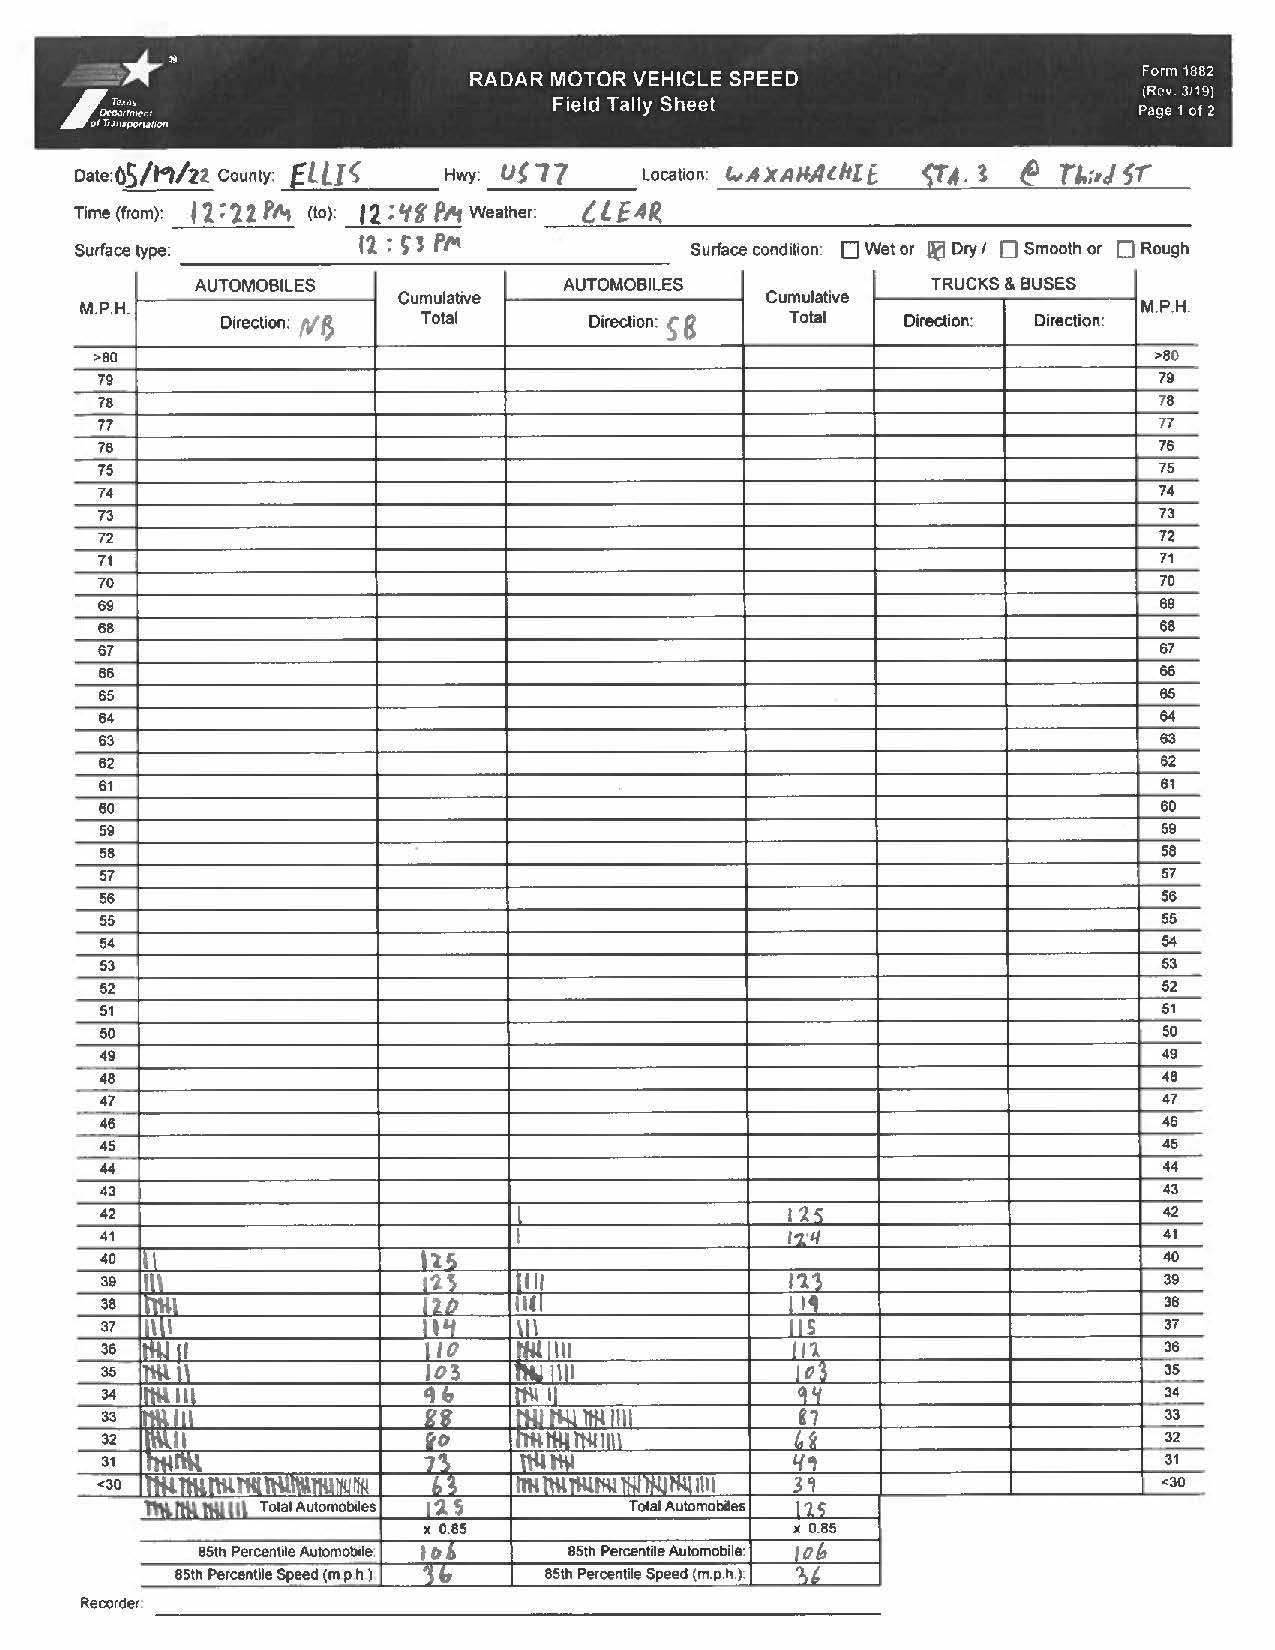 Texas
Department
of Transportation
RADAR MOTOR VEHICLE SPEED
Field Tally Sheet
Form 1882
(Rev. 3/19)
Page 1 of 2
Date: 05/19/22 County: ELLIS Hwy: US77 Location: WAXAHACHIE STA. 3 @ Third ST
Time (from): 12:22 PM (to): 12:48 PM Weather: CLEAR
Surface type: 12:53 PM Surface condition: Wet or Dry / Smooth or Rough
M.P.H. AUTOMOBILES Cumulative Total AUTOMOBILES Cumulative Total TRUCKS & BUSES M.P.H.
Direction: NB Direction: SB Direction: Direction:
>80 >80
79 79
78 78
77 77
76 76
75 75
74 74
73 73
72 72
71 71
70 70
69 69
68 68
67 67
66 66
65 65
64 64
63 63
62 62
61 61
60 60
59 59
58 58
57 57
56 56
55 55
54 54
53 53
52 52
51 51
50 50
49 49
48 48
47 47
46 46
45 45
44 44
43 43
42 125 42
41 124 41
40 125 40
39 123 123 39
38 120 119 38
37 114 115 37
36 110 112 36
35 103 103 35
34 96 94 34
33 88 87 33
32 80 68 32
31 73 49 31
<30 63 39 <30
Total Automobiles 125 Total Automobiles 125
x 0.85 x 0.85
85th Percentile Automobile: 106 85th Percentile Automobile: 106
85th Percentile Speed (m.p.h.): 36 85th Percentile Speed (m.p.h.): 36
Recorder: